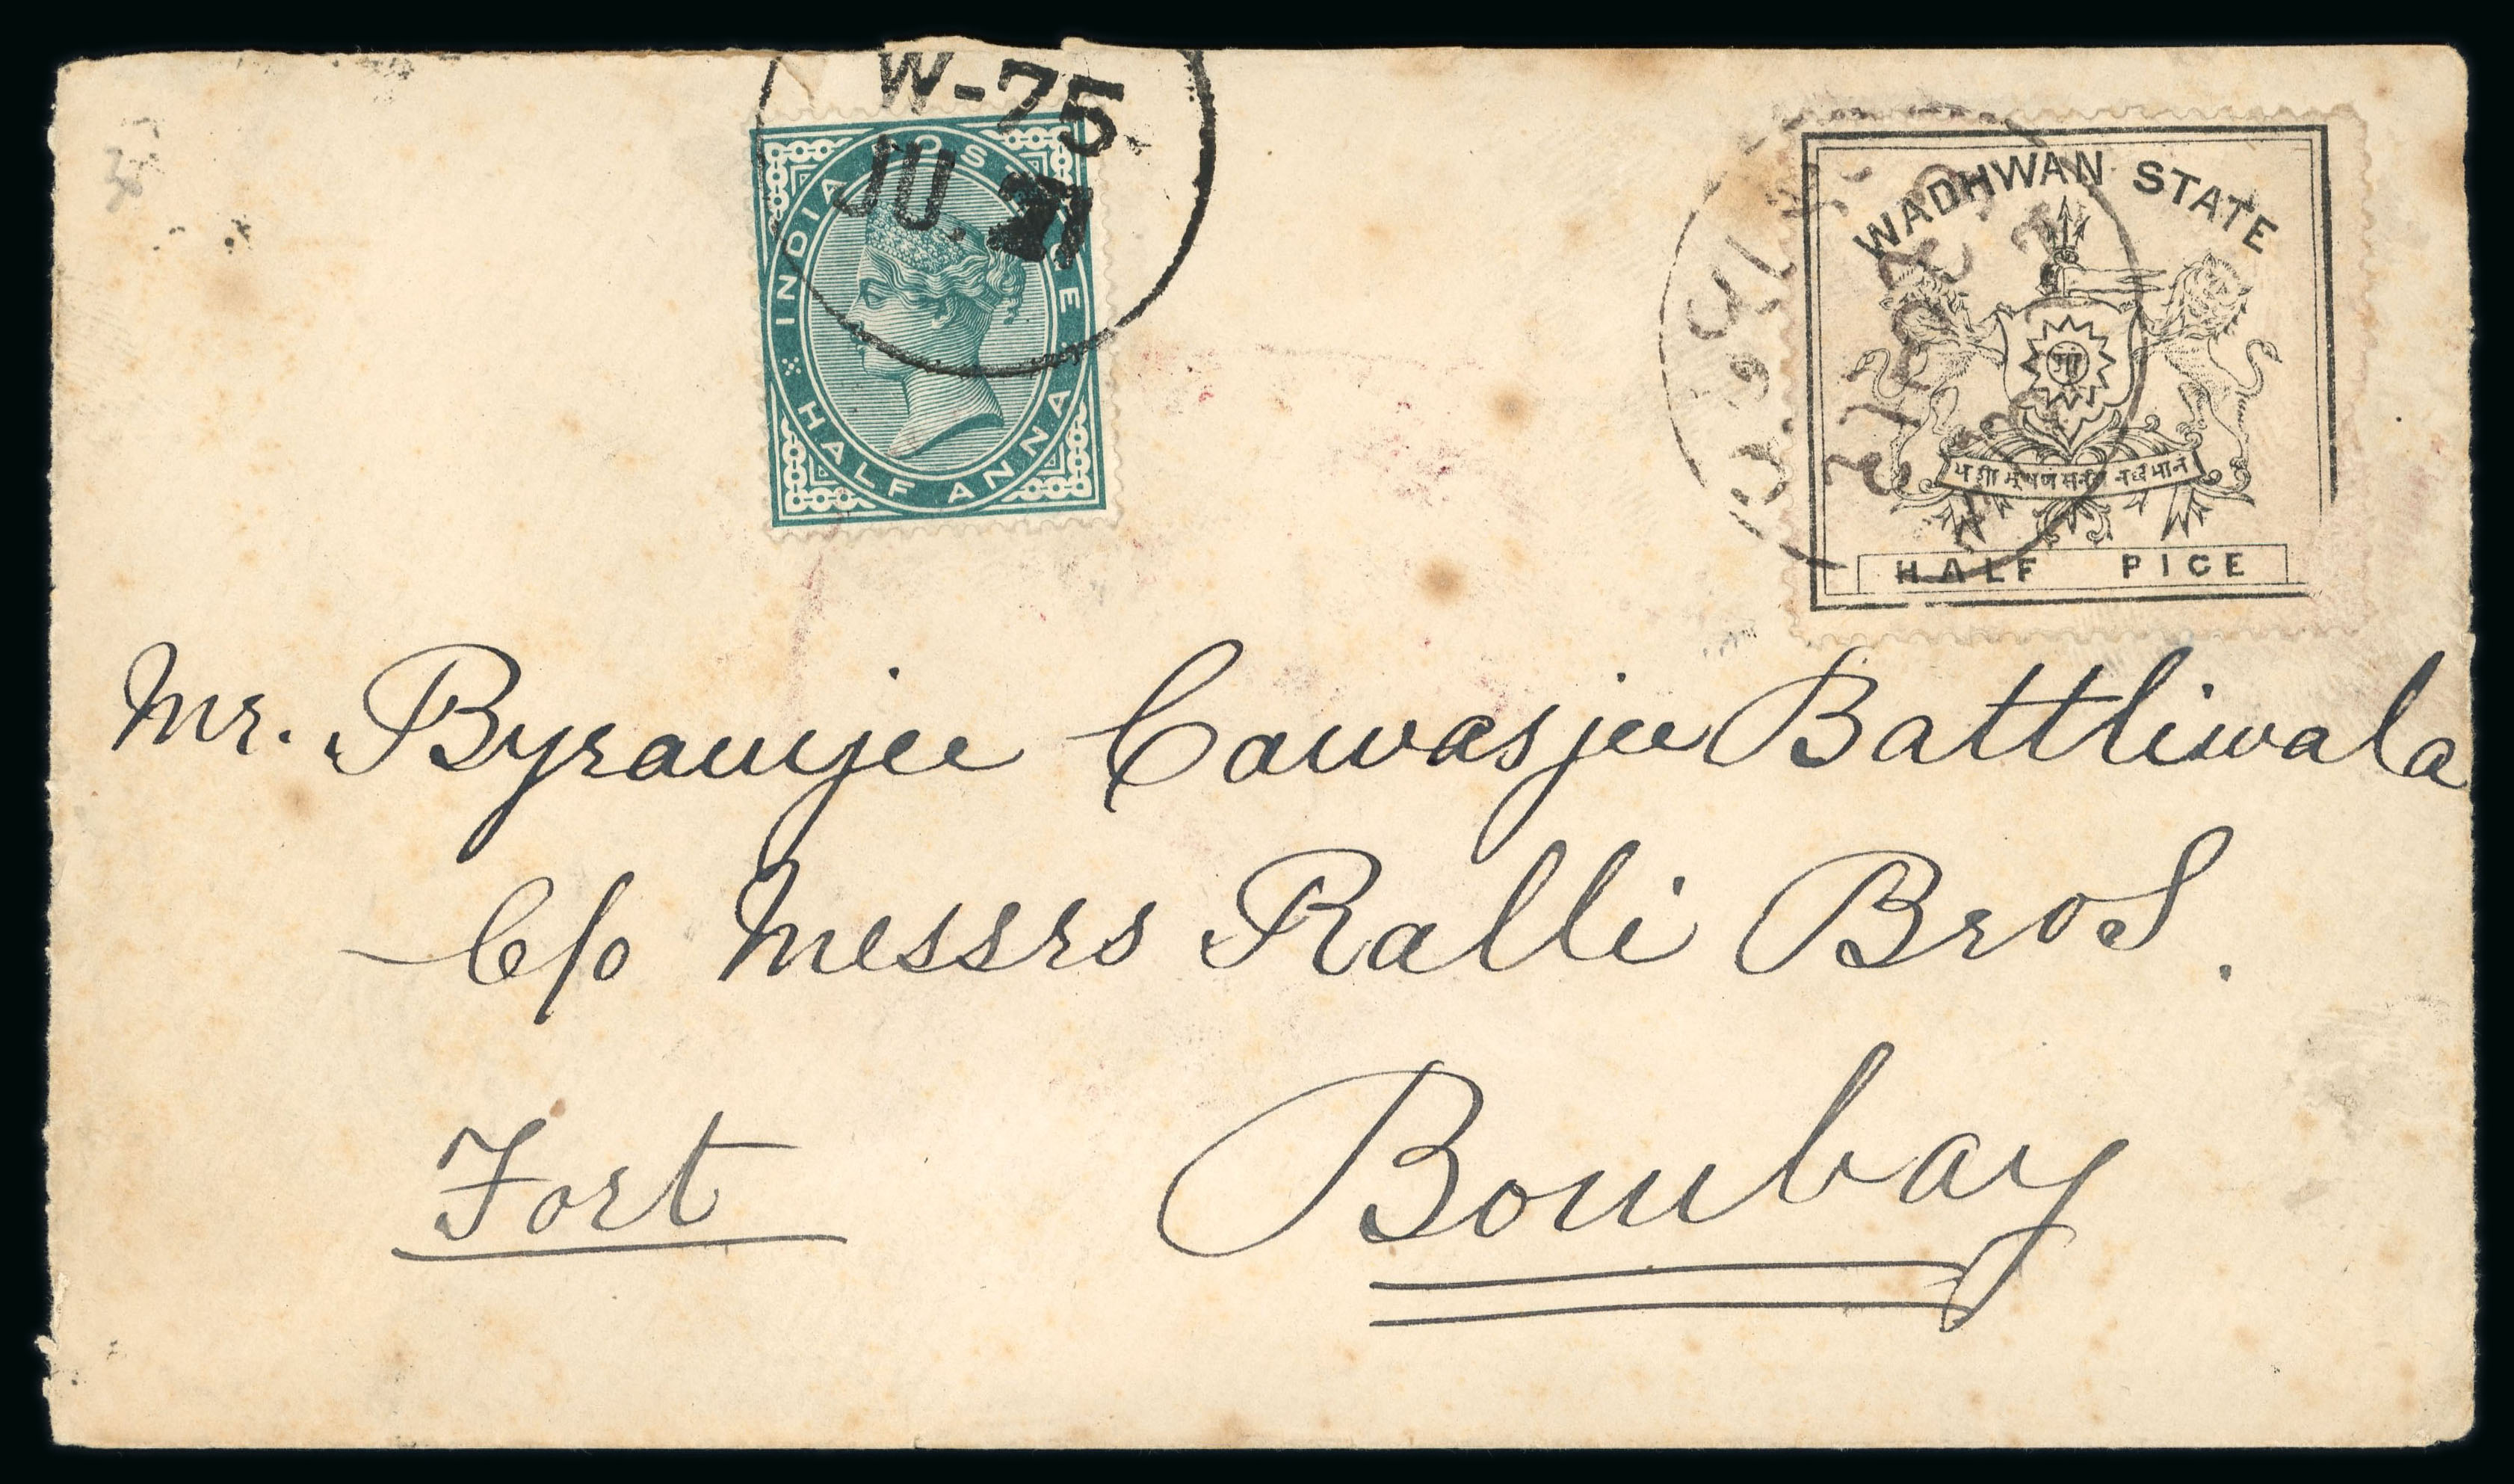 W-75
JU. 21
INDIA POSTAGE
HALF ANNA
WADHWAN STATE
HALF PICE
Mr. Byramjee Cawasjee Battliwala
C/o Messrs Ralli Bros.
Fort Bombay